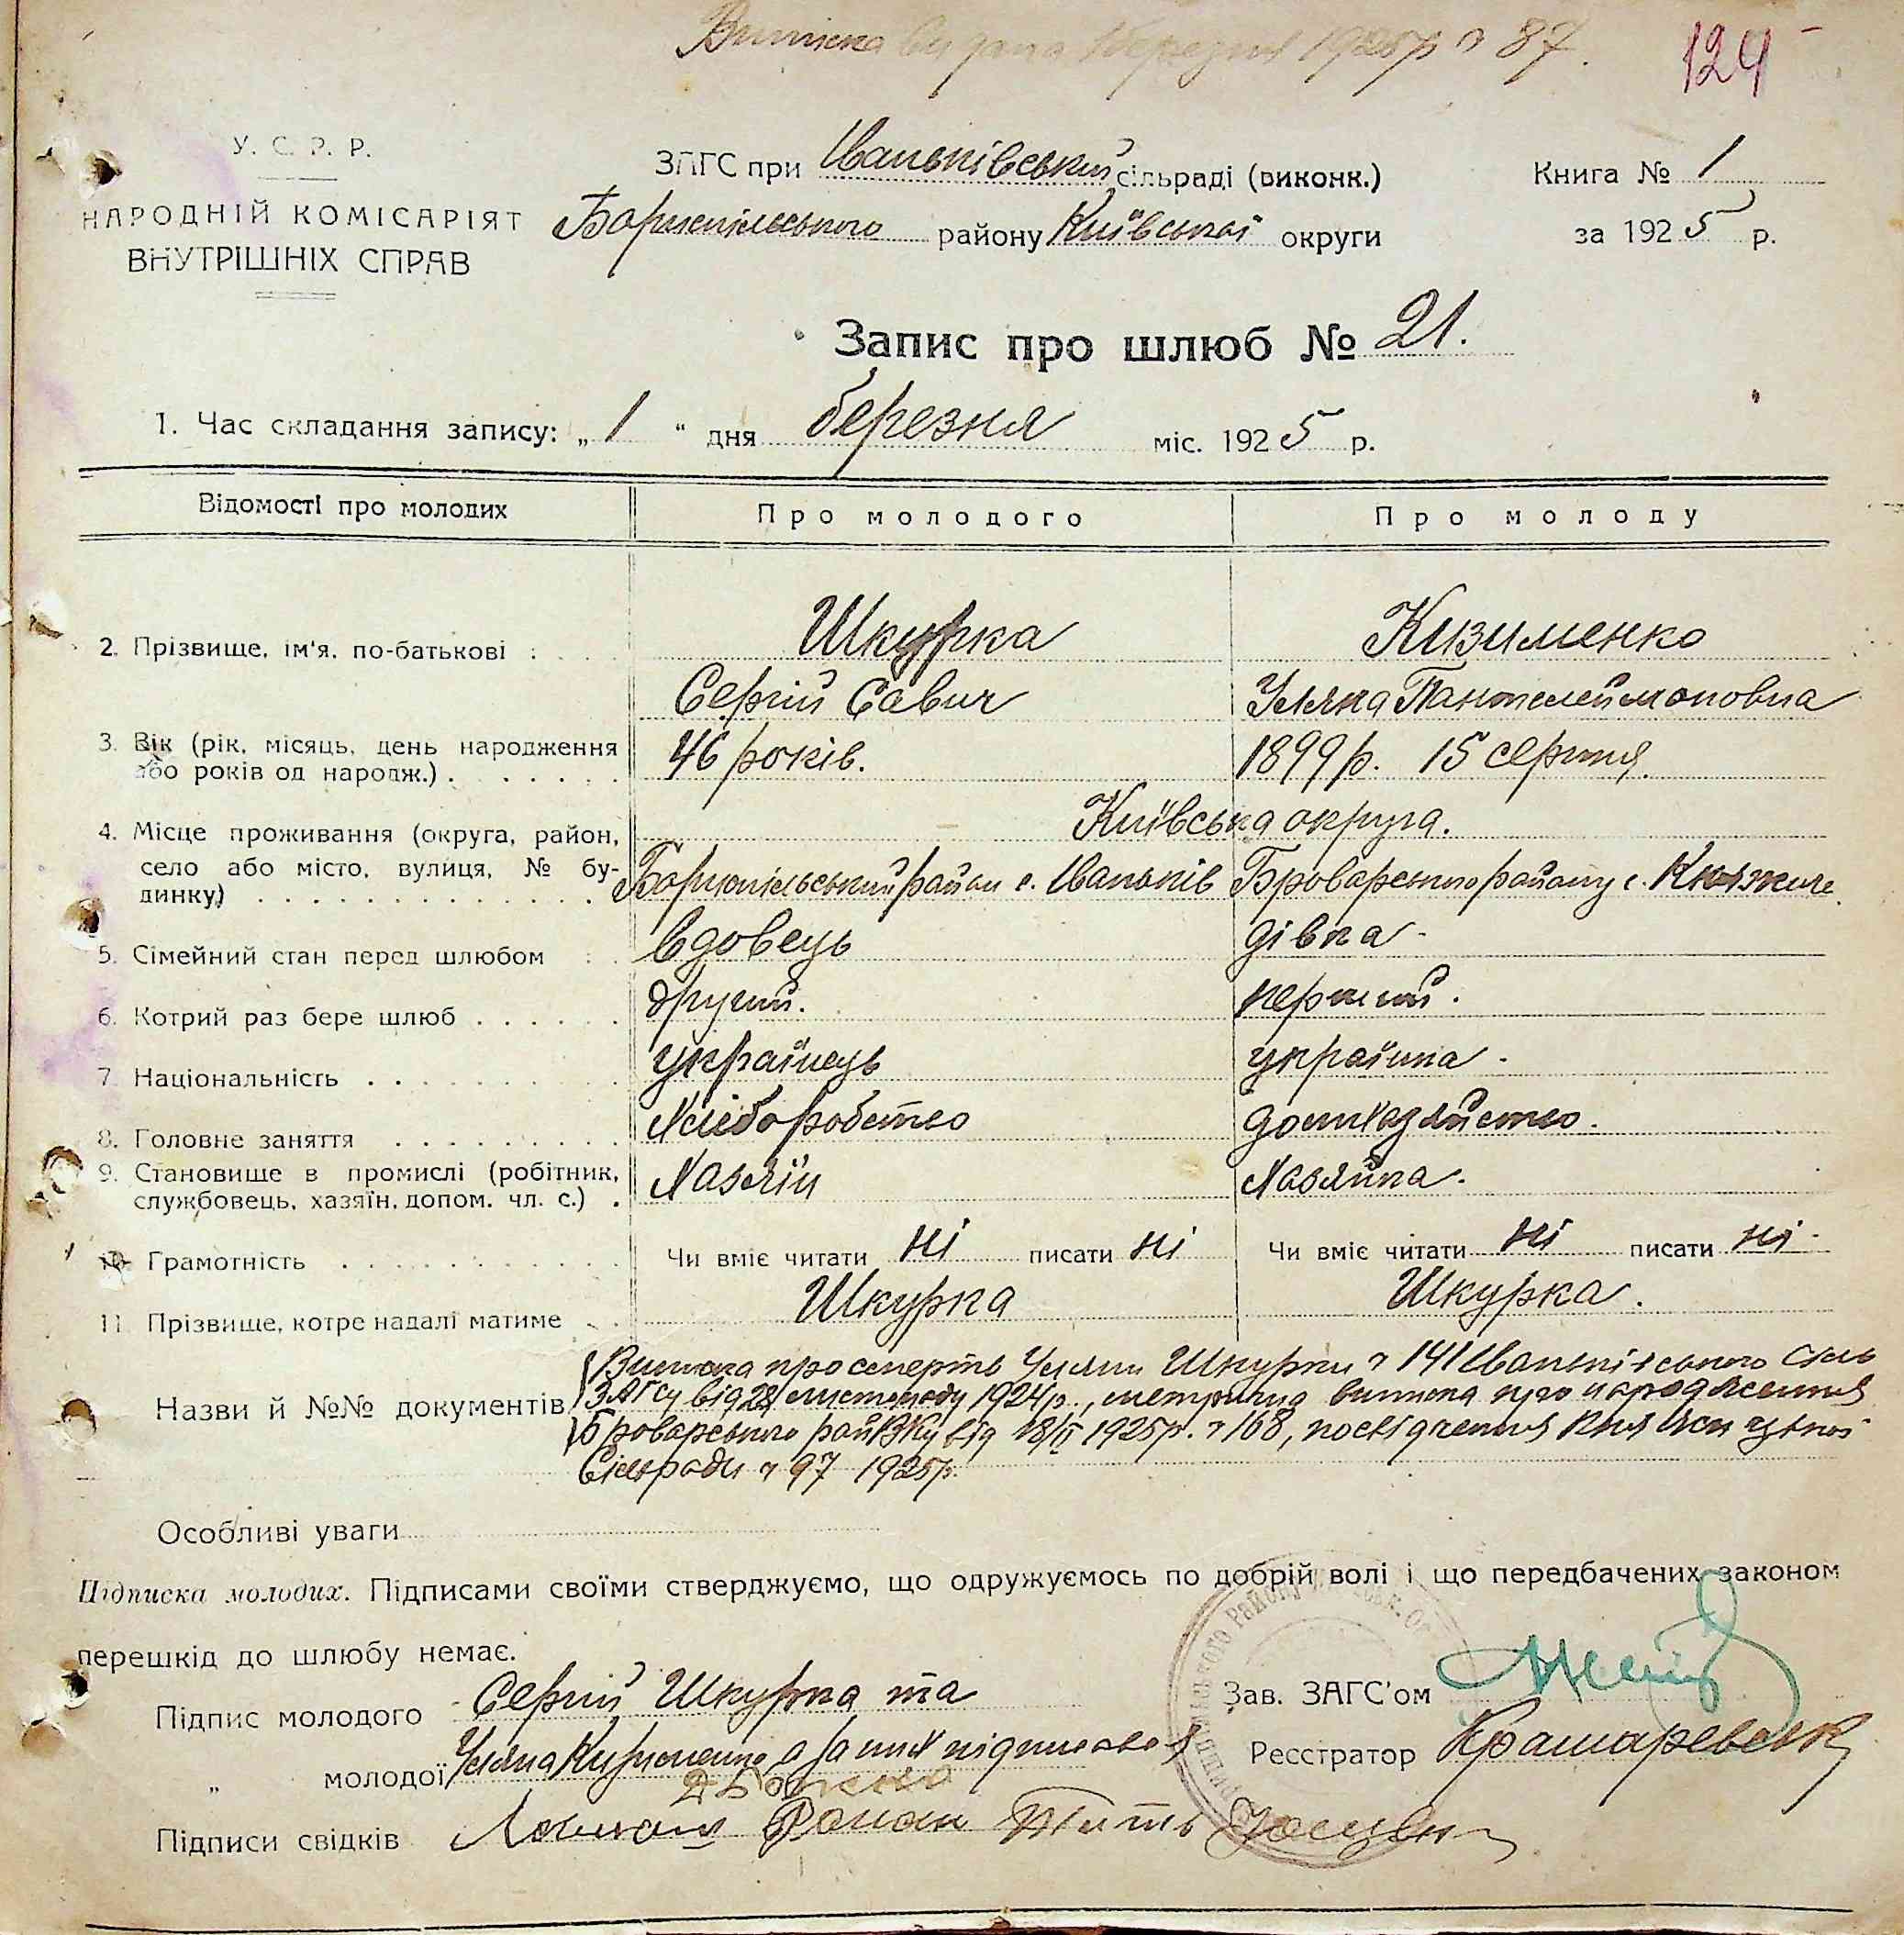 Виписка видана 1 березня 1925р № 87.
124
У. С. Р. Р.
НАРОДНІЙ КОМІСАРІЯТ
ВНУТРІШНІХ СПРАВ
ЗАГС при Іваньківський сільраді (виконк.)
Бориспільського району Київської округи
Книга № 1
за 1925 р.
Запис про шлюб № 21.
1. Час складання запису: „ 1 " дня березня міс. 1925 р.
Відомості про молодих
Про молодого
Про молоду
2. Прізвище, ім'я, по-батькові :
Шкурка
Сергій Савич
Кизименко
Уляна Пантелеймоновна
3. Вік (рік, місяць, день народження
або років од народж.)
46 років.
1899р. 15 серпня.
4. Місце проживання (округа, район,
село або місто, вулиця, № бу-
динку)
Київська округа.
Бориспільський район с. Іваньків
Броварського району с. Княжиче
5. Сімейний стан перед шлюбом
вдовець
дівка
6. Котрий раз бере шлюб
другий.
перший.
7. Національність
українець
українка
8. Головне заняття
Хліборобство
домхазяйство.
9. Становище в промислі (робітник,
службовець, хазяїн, допом. чл. с.)
Хазяїн
Хазяйка.
10 Грамотність
Чи вміє читати ні писати ні
Чи вміє читати ні писати ні
11. Прізвище, котре надалі матиме
Шкурка
Шкурка.
Назви й №№ документів
Виписка про смерть Уляни Шкурки № 141 Іваньківського Сіль
ЗАГСу від 28 листопаду 1924р., метрична виписка про народження
Броварського райВКу від 18/II 1925р. № 168, посвідчення
Сільради № 97 1925р.
Особливі уваги
Підписка молодих. Підписами своїми стверджуємо, що одружуємось по добрій волі і що передбачених законом
перешкід до шлюбу немає.
Підпис молодого Сергій Шкурка та
„ молодої Уляна Кизименко а за них підписався
Підписи свідків Роман
Зав. ЗАГС'ом
Реєстратор